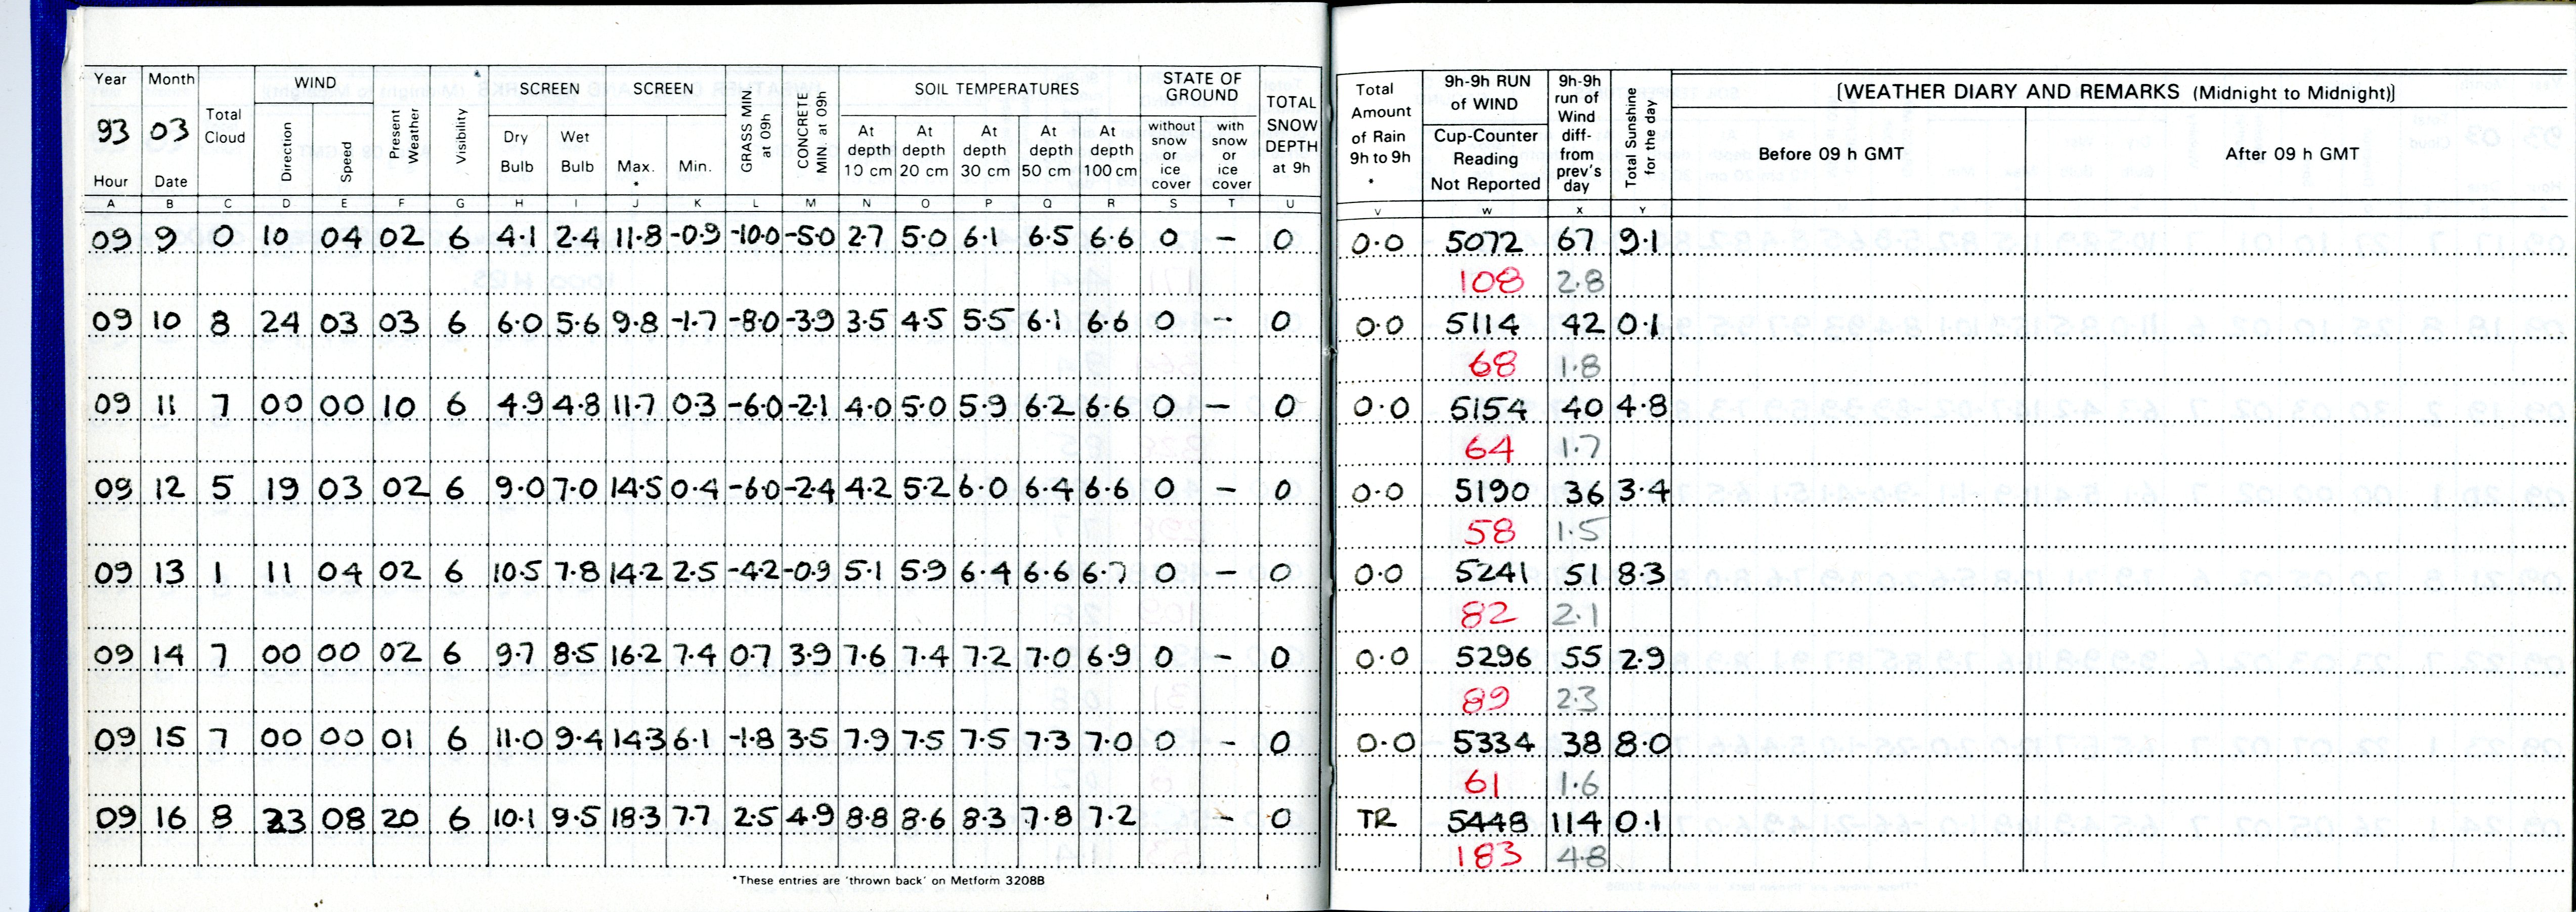 Year Month Total Cloud WIND Present Weather Visibility SCREEN SCREEN GRASS MIN at 09h CONCRETE MIN. at 09h SOIL TEMPERATURES STATE OF GROUND TOTAL SNOW DEPTH at 9h Total Amount of Rain 9h to 9h * 9h-9h RUN of WIND 9h-9h run of Wind diff- from prev's day Total Sunshine for the day [WEATHER DIARY AND REMARKS (Midnight to Midnight)]
93 03 Direction Speed Dry Bulb Wet Bulb Max. * Min. At depth 10 cm At depth 20 cm At depth 30 cm At depth 50 cm At depth 100 cm without snow or ice cover with snow or ice cover Cup-Counter Reading Not Reported Before 09 h GMT After 09 h GMT
Hour Date
A B C D E F G H I J K L M N O P Q R S T U V W X Y
09 9 0 10 04 02 6 4.1 2.4 11.8 -0.9 -10.0 -5.0 2.7 5.0 6.1 6.5 6.6 0 - 0 0.0 5072 67 9.1
108 2.8
09 10 8 24 03 03 6 6.0 5.6 9.8 -1.7 -8.0 -3.9 3.5 4.5 5.5 6.1 6.6 0 - 0 0.0 5114 42 0.1
68 1.8
09 11 7 00 00 10 6 4.9 4.8 11.7 0.3 -6.0 -2.1 4.0 5.0 5.9 6.2 6.6 0 - 0 0.0 5154 40 4.8
64 1.7
09 12 5 19 03 02 6 9.0 7.0 14.5 0.4 -6.0 -2.4 4.2 5.2 6.0 6.4 6.6 0 - 0 0.0 5190 36 3.4
58 1.5
09 13 1 11 04 02 6 10.5 7.8 14.2 2.5 -4.2 -0.9 5.1 5.9 6.4 6.6 6.7 0 - 0 0.0 5241 51 8.3
82 2.1
09 14 7 00 00 02 6 9.7 8.5 16.2 7.4 0.7 3.9 7.6 7.4 7.2 7.0 6.9 0 - 0 0.0 5296 55 2.9
89 2.3
09 15 7 00 00 01 6 11.0 9.4 14.3 6.1 -1.8 3.5 7.9 7.5 7.5 7.3 7.0 0 - 0 0.0 5334 38 8.0
61 1.6
09 16 8 23 08 20 6 10.1 9.5 18.3 7.7 2.5 4.9 8.8 8.6 8.3 7.8 7.2 - 0 TR 5448 114 0.1
183 4.8
*These entries are 'thrown back' on Metform 3208B